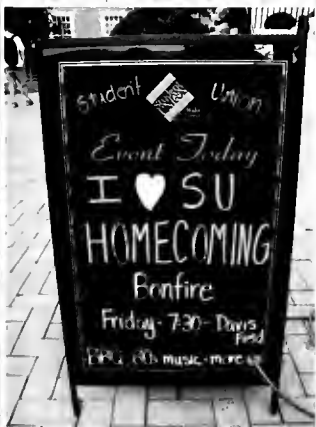 Student Union
Event Today
I ♥ SU
HOMECOMING
Bonfire
Friday - 7:30 - Davis
Field
BBQ, 80s music - more